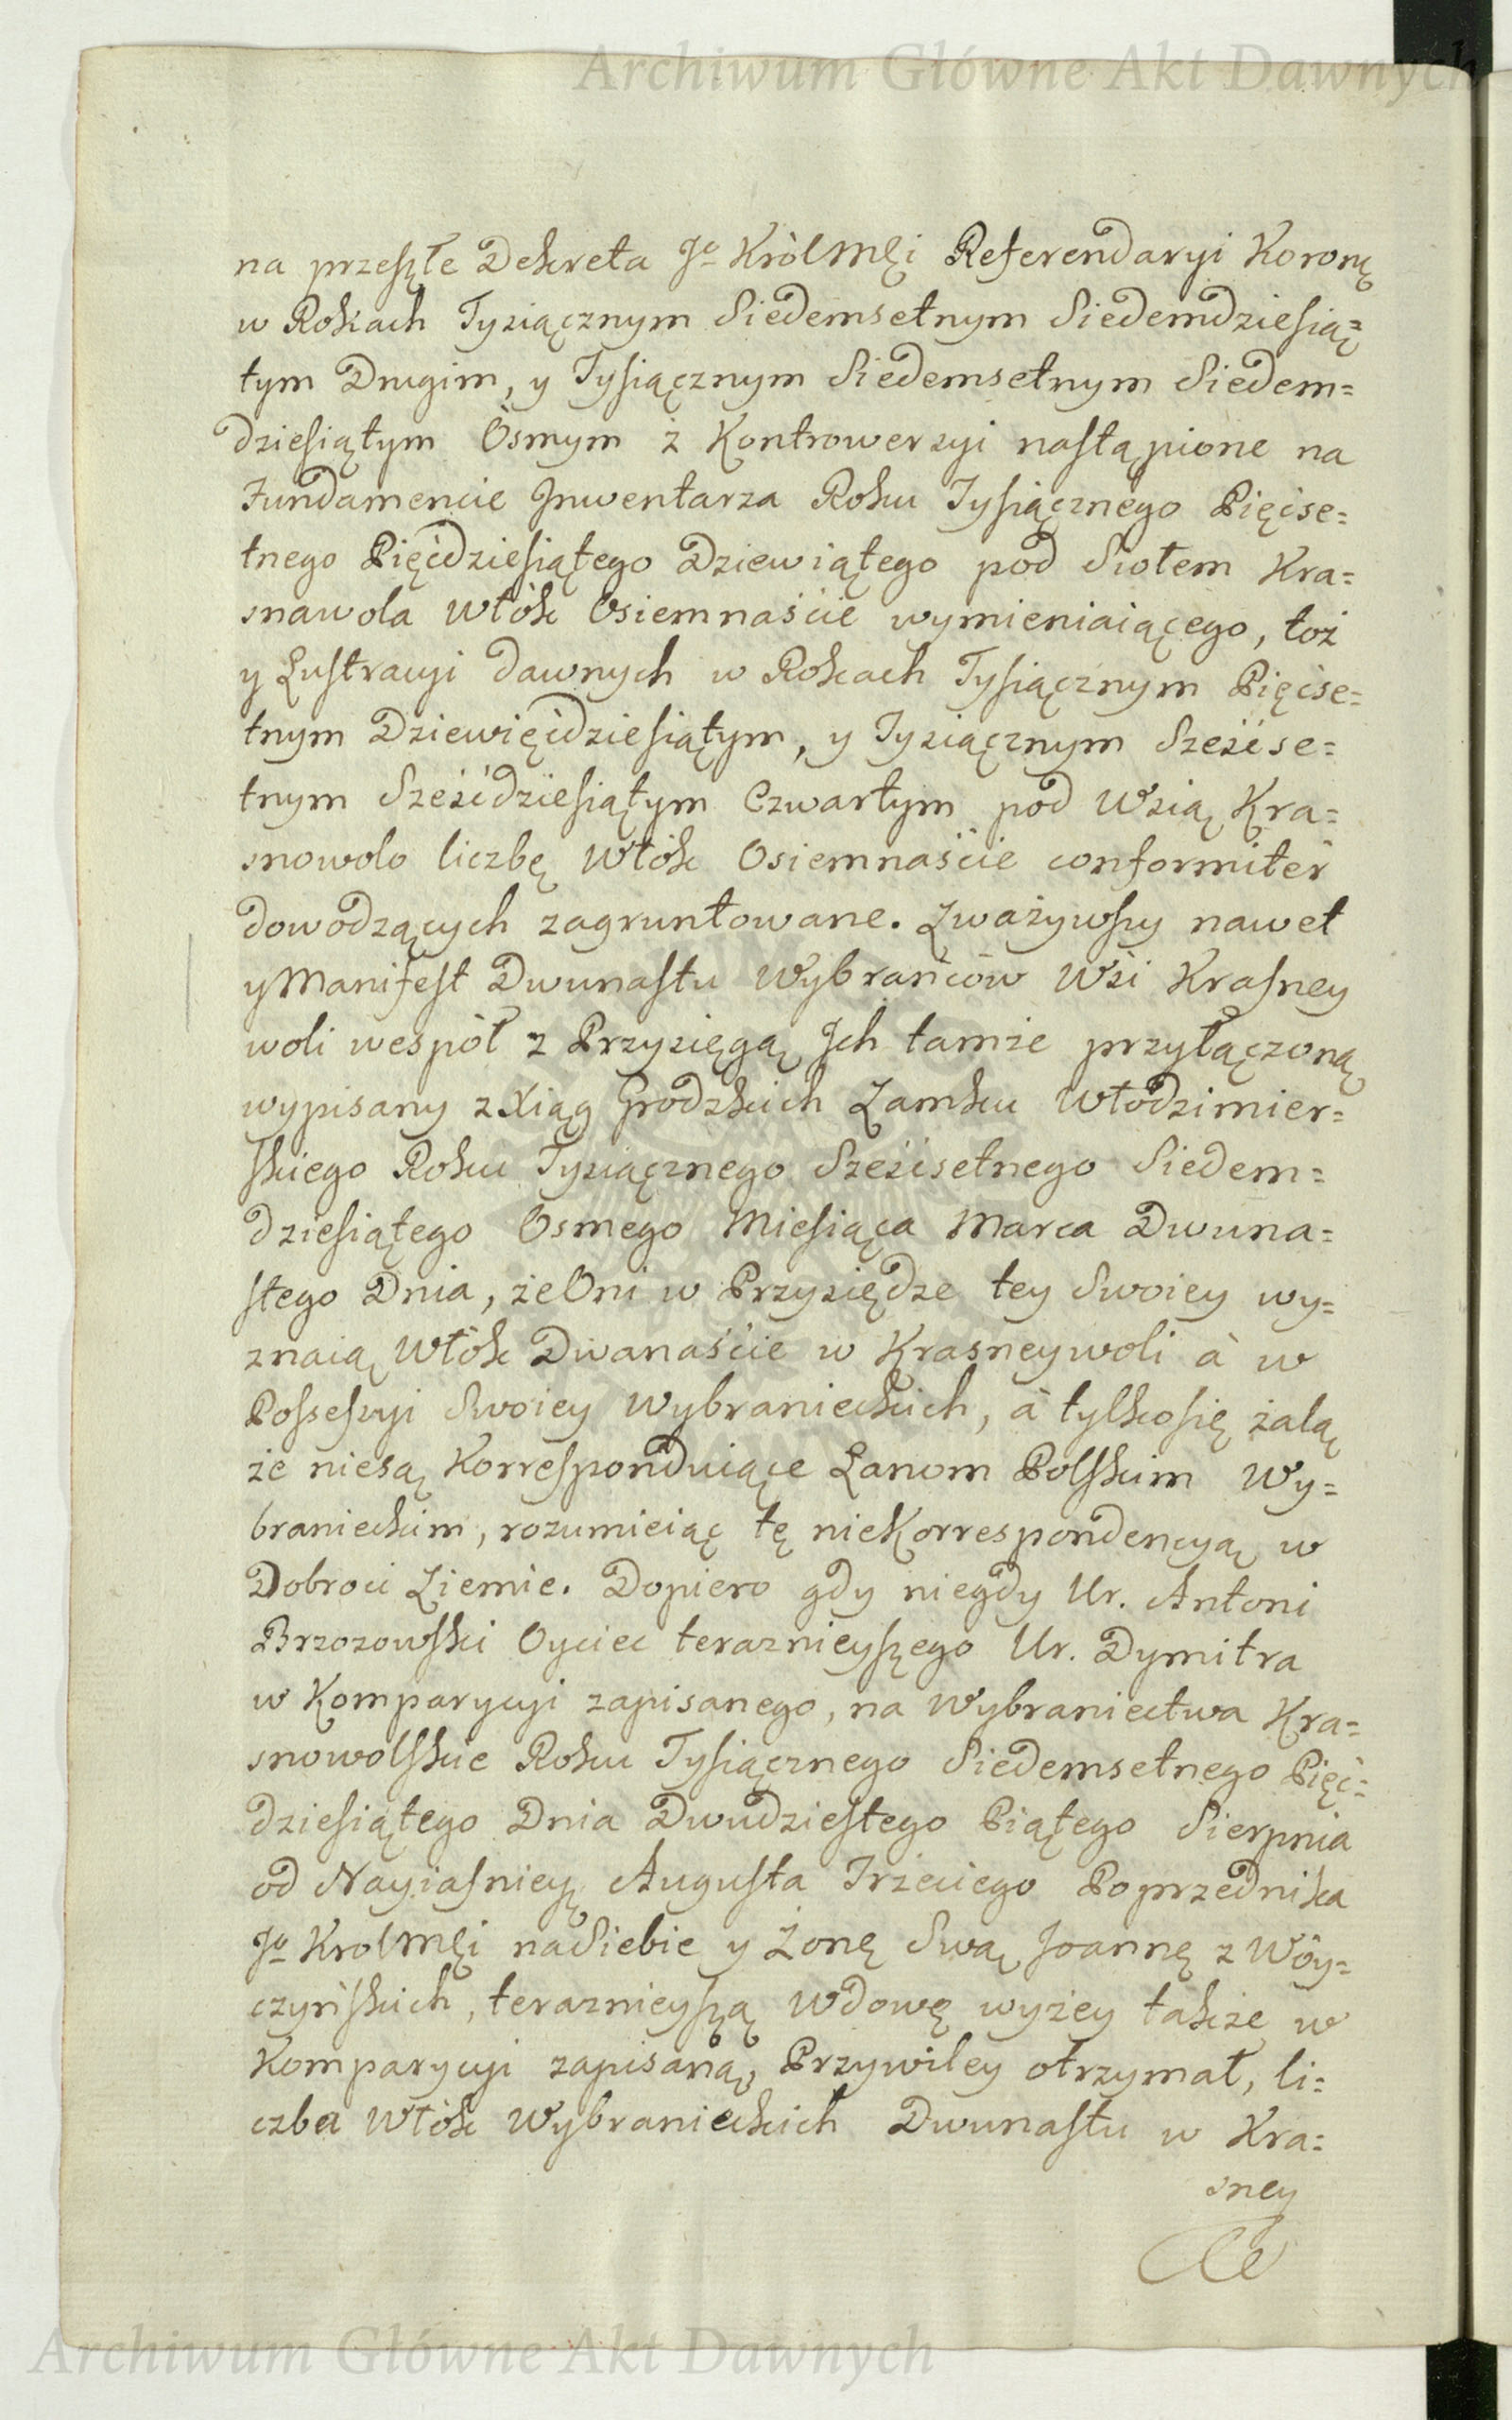 Archiwum Główne Akt Dawnych
na przeszłe Dekreta Jo Król Mci Referendaryi Koronę
w Rokach Tysiącznym Siedemsetnym Siedemdziesią=
tym Drugim, y Tysiącznym Siedemsetnym Siedem=
dziesiątym Osmym z Kontrowersyi nastąpione na
Fundamencie Jnwentarza Roku Tysiącznego Pięćse=
tnego Pięćdziesiątego Dziewiątego pod Siołem Kra=
snawola Włók Osiemnaście wymieniaiącego, toż
y Lustracyi dawnych w Rokach Tysiącznym Pięćse=
tnym Dziewięćdziesiątym, y Tysiącznym Sześćse=
tnym Sześćdziesiątym Czwartym pod Wsią Kra=
snowolo liczbę Włók Osiemnaście conformiter
dowodzących zagruntowane. Zważywszy nawet
y Manifest Dwunastu Wybrańców Wsi Krasney
woli wespół z Przysięgą Jch tamże przyłączoną
wypisany z Xiąg Grodzkich Zamku Włodzimier=
skiego Roku Tysiącznego Sześćsetnego Siedem=
dziesiątego Osmego Miesiąca Marca Dwuna=
stego Dnia, że Oni w Przysiędze tey Swoiey wy=
znaią Włók Dwanaście w Krasneywoli à w
Possessyi Swoiey Wybranieckich, à tylko się żalą
że niesą Korrespònduiące Łanom Polskim Wy=
branieckim, rozumieiąc tę nieKorrespondencyą w
Dobroci Ziemie. Dopiero gdy niegdy Ur. Antoni
Brzozowski Oyciec teraznieyszego Ur. Dymitra
w Komparycyi zapisanego, na Wybraniectwa Kra=
snowolskie Roku Tysiącznego Siedemsetnego Pięć=
dziesiątego Dnia Dwudziestego Piątego Sierpnia
od Nayiasnieyszę Augusta Trzeciego Poprzednika
Jo Krol Mci na Siebie y Żonę Swą Joannę z Wóy=
czyńskich, teraznieyszą Wdowę wyżey także w
Komparycyi zapisaną, Przywiley otrzymał, li=
czba Włók Wybranieckich Dwunastu w Kra=
sney
Archiwum Główne Akt Dawnych